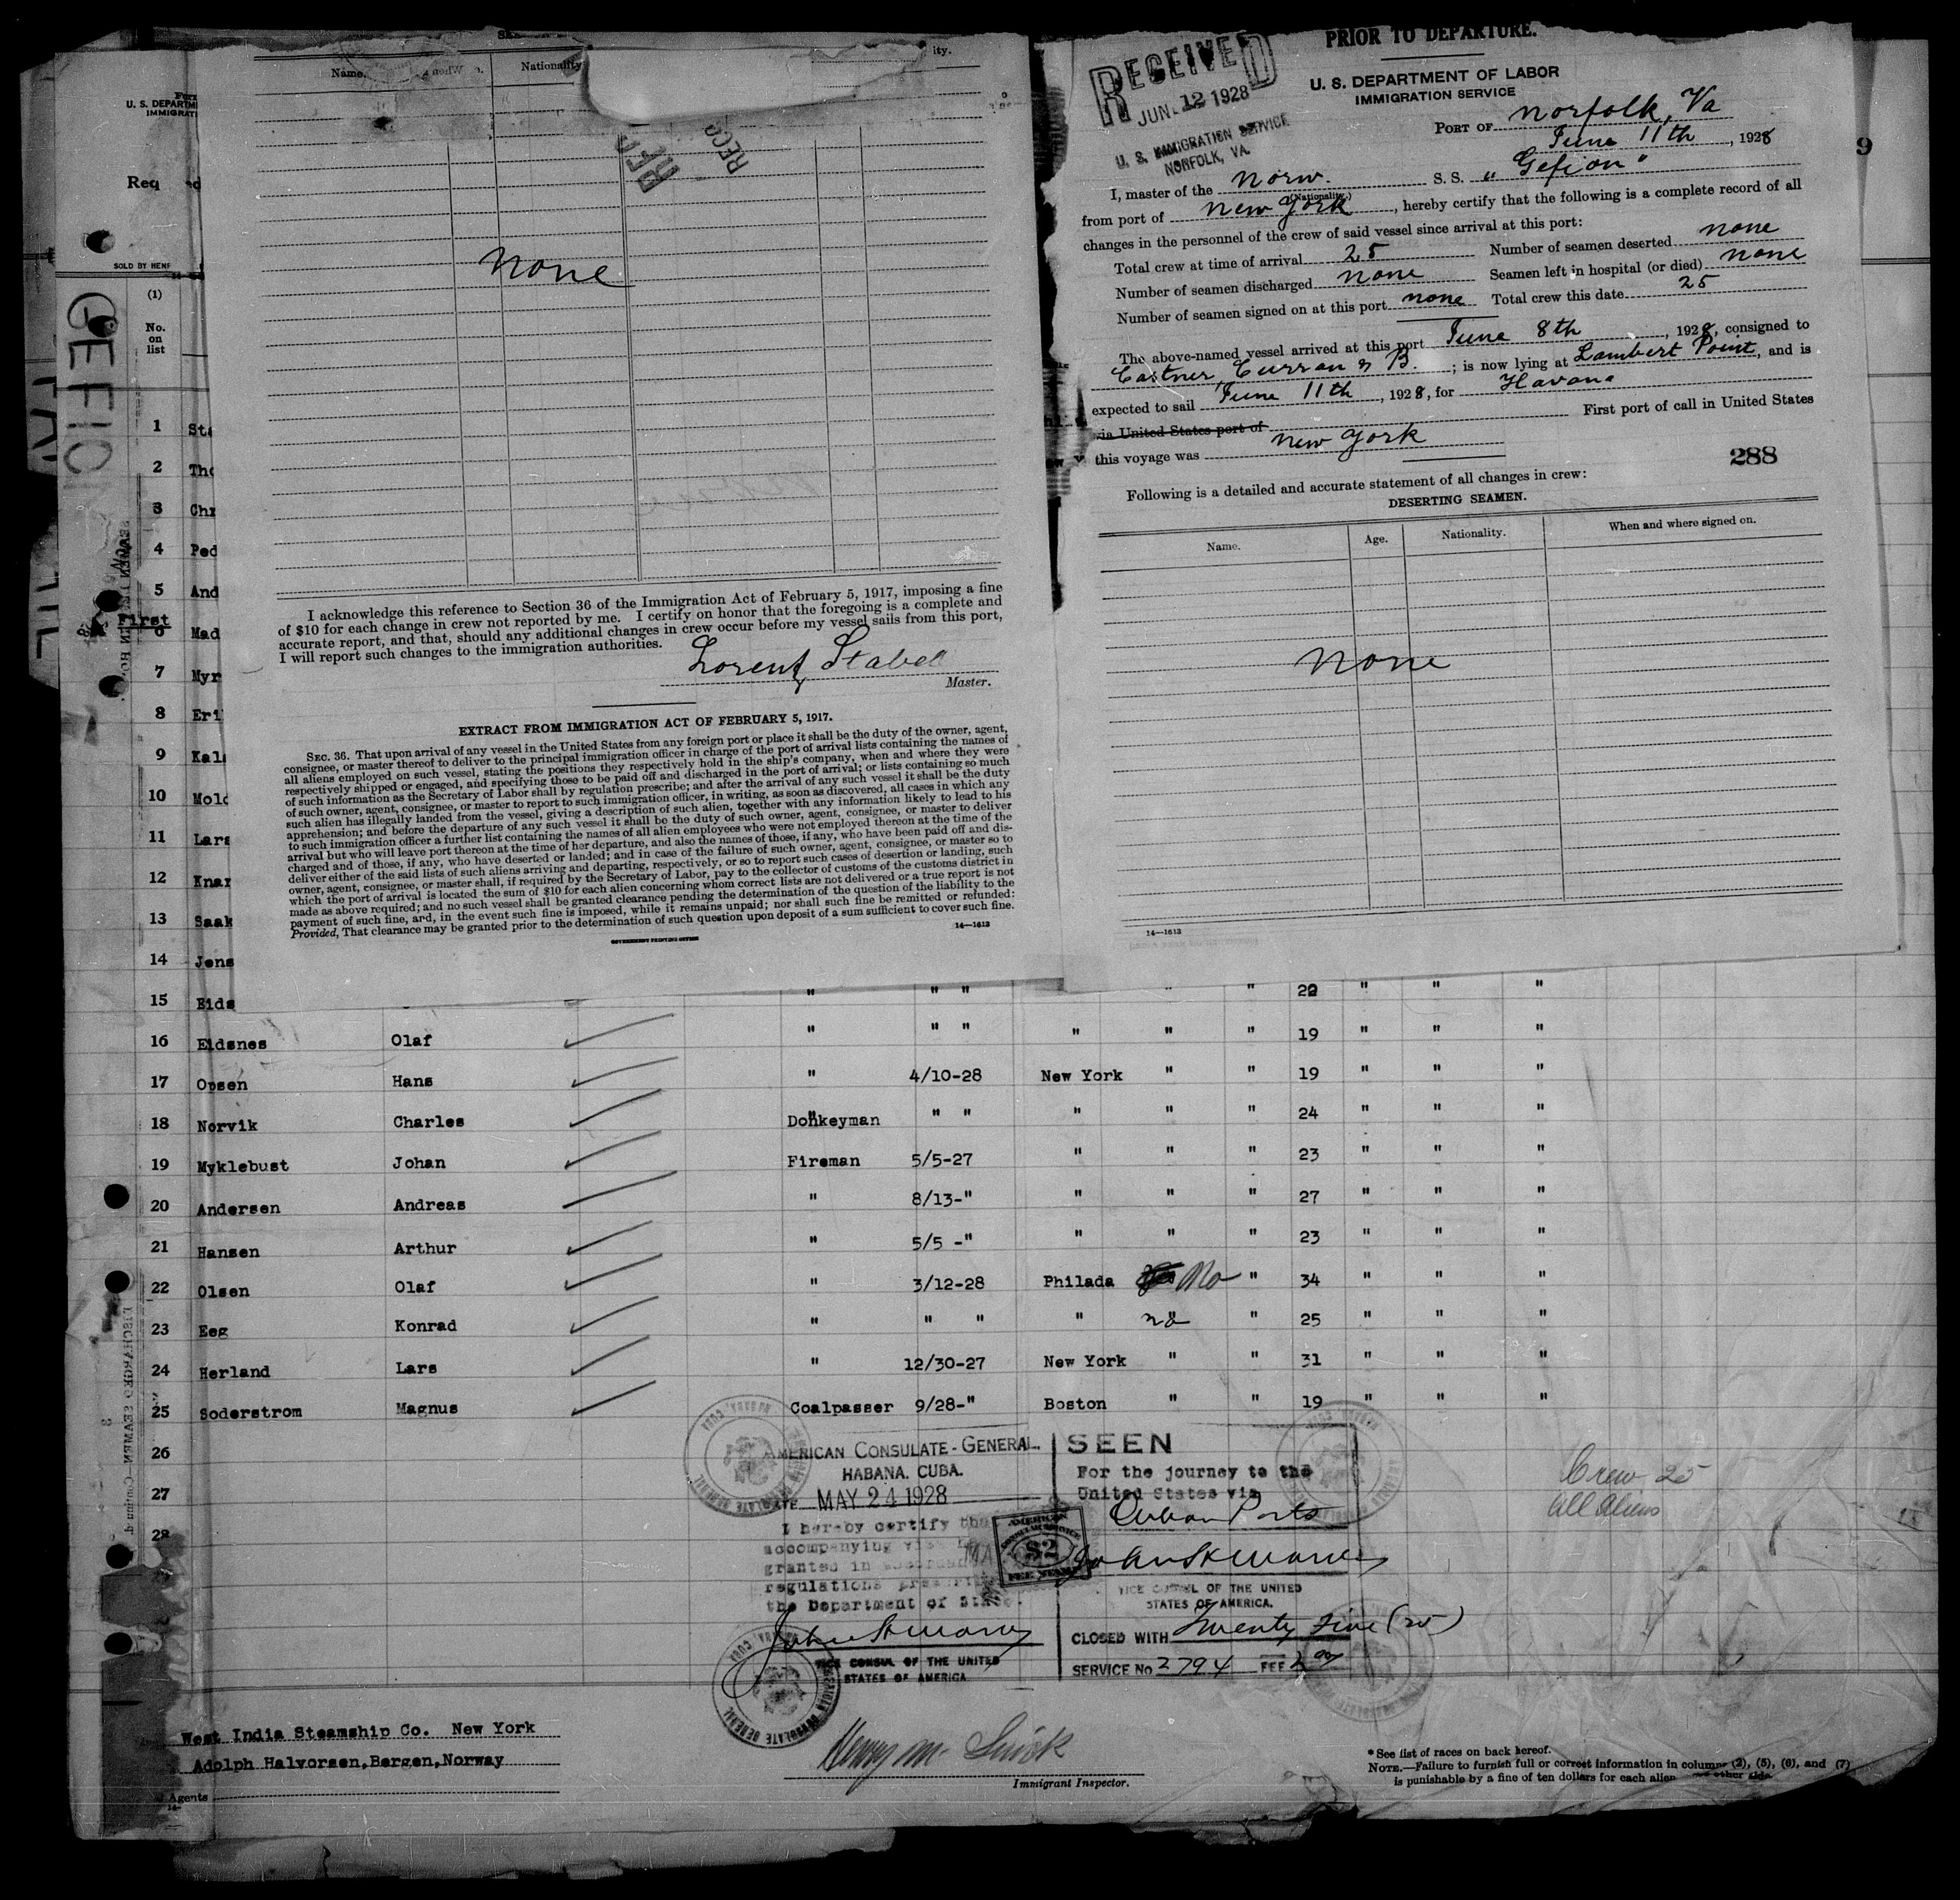 Name.
Nationality
ity.
None
I acknowledge this reference to Section 36 of the Immigration Act of February 5, 1917, imposing a fine
of $10 for each change in crew not reported by me. I certify on honor that the foregoing is a complete and
accurate report, and that, should any additional changes in crew occur before my vessel sails from this port,
I will report such changes to the immigration authorities.
Lorentz Stabell
Master.
EXTRACT FROM IMMIGRATION ACT OF FEBRUARY 5, 1917.
SEC. 36. That upon arrival of any vessel in the United States from any foreign port or place it shall be the duty of the owner, agent,
consignee, or master thereof to deliver to the principal immigration officer in charge of the port of arrival lists containing the names of
all aliens employed on such vessel, stating the positions they respectively hold in the ship's company, when and where they were
respectively shipped or engaged, and specifying those to be paid off and discharged in the port of arrival; or lists containing so much
of such information as the Secretary of Labor shall by regulation prescribe; and after the arrival of any such vessel it shall be the duty
of such owner, agent, consignee, or master to report to such immigration officer, in writing, as soon as discovered, all cases in which any
such alien has illegally landed from the vessel, giving a description of such alien, together with any information likely to lead to his
apprehension; and before the departure of any such vessel it shall be the duty of such owner, agent, consignee, or master to deliver
to such immigration officer a further list containing the names of all alien employees who were not employed thereon at the time of the
arrival but who will leave port thereon at the time of her departure, and also the names of those, if any, who have been paid off and dis-
charged and of those, if any, who have deserted or landed; and in case of the failure of such owner, agent, consignee, or master so to
deliver either of the said lists of such aliens arriving and departing, respectively, or so to report such cases of desertion or landing, such
owner, agent, consignee, or master shall, if required by the Secretary of Labor, pay to the collector of customs of the customs district in
which the port of arrival is located the sum of $10 for each alien concerning whom correct lists are not delivered or a true report is not
made as above required; and no such vessel shall be granted clearance pending the determination of the question of the liability to the
payment of such fine, and, in the event such fine is imposed, while it remains unpaid; nor shall such fine be remitted or refunded:
Provided, That clearance may be granted prior to the determination of such question upon deposit of a sum sufficient to cover such fine.
GOVERNMENT PRINTING OFFICE
14—1613
PRIOR TO DEPARTURE.
RECEIVED
JUN 12 1928
U. S. IMMIGRATION SERVICE
NORFOLK, VA.
U. S. DEPARTMENT OF LABOR
IMMIGRATION SERVICE
PORT OF Norfolk, Va
June 11th, 1928
I, master of the Norw. S. S. "Gefion"
(Nationality.)
from port of New York, hereby certify that the following is a complete record of all
changes in the personnel of the crew of said vessel since arrival at this port:
Total crew at time of arrival 25 Number of seamen deserted none
Number of seamen discharged none Seamen left in hospital (or died) none
Number of seamen signed on at this port none Total crew this date 25
The above-named vessel arrived at this port June 8th, 1928, consigned to
Castner Curran & B.; is now lying at Lambert Point, and is
expected to sail June 11th, 1928, for Havana
via United States port of First port of call in United States
this voyage was New York
288
Following is a detailed and accurate statement of all changes in crew:
DESERTING SEAMEN.
Name. Age. Nationality. When and where signed on.
None
14—1613
9
U. S. DEPARTM
IMMIGRAT
Req
SOLD BY HENR
GEFION
(1)
No.
on
list
1 Sta
2 Tho
3 Chr
4 Ped
5 And
First
6 Mad
7 Myr
8 Eri
9 Kal
10 Mold
11 Lars
12 Knar
13 Saak
14 Jens
15 Eids " " " " " " " "
16 Eidsnes Olaf " " " " " " 19 " " "
17 Opsen Hans " 4/10-28 New York " " 19 " " "
18 Norvik Charles Donkeyman " " " " " 24 " " "
19 Myklebust Johan Fireman 5/5-27 " " " 23 " " "
20 Andersen Andreas " 8/13-" " " " 27 " " "
21 Hansen Arthur " 5/5 -" " " " 23 " " "
22 Olsen Olaf " 3/12-28 Philada No " 34 " " "
23 Eeg Konrad " " " " no " 25 " " "
24 Herland Lars " 12/30-27 New York " " 31 " " "
25 Soderstrom Magnus Coalpasser 9/28-" Boston " " 19 " " "
26
27
28
Crew 25
All aliens
AMERICAN CONSULATE-GENERAL.
HABANA, CUBA.
DATE MAY 24 1928
I hereby certify that
accompanying
granted in
regulations
the Department of State.
VICE CONSUL OF THE UNITED
STATES OF AMERICA
SEEN
For the journey to the
United States via
Cuban Ports
AMERICAN
$2
FEE STAMP
VICE CONSUL OF THE UNITED
STATES OF AMERICA.
CLOSED WITH Twenty five (25)
SERVICE No 2794 FEE 2.00
West India Steamship Co. New York
Adolph Halvorsen, Bergen, Norway
Agents
Immigrant Inspector.
* See list of races on back hereof.
NOTE.—Failure to furnish full or correct information in columns (2), (5), (6), and (7)
is punishable by a fine of ten dollars for each alien